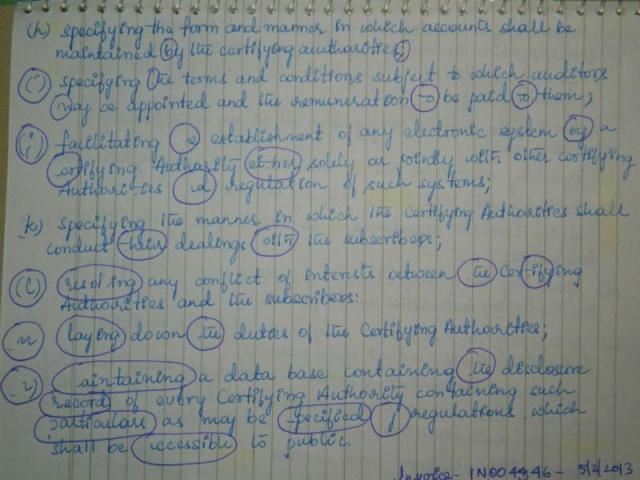 (h) specifying the form and manner in which accounts shall be
maintained by the certifying authorities;
(i) specifying the terms and conditions subject to which auditors
may be appointed and the remuneration to be paid to them;
(j) facilitating the establishment of any electronic system by a
certifying Authority either solely or jointly with other certifying
Authorities and regulation of such systems;
(k) specifying the manner in which the Certifying Authorities shall
conduct their dealings with the subscribers;
(l) resolving any conflict of interests between the Certifying
Authorities and the subscribers:
m laying down the duties of the Certifying Authorities;
maintaining a data base containing the disclosure
record of every Certifying Authority containing such
particulars as may be specified regulations, which
shall be accessible to public.
Invoice - IN004846 - 5/2/2013